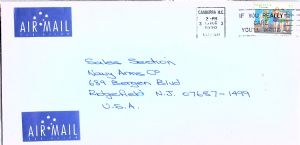 AIR MAIL
CANBERRA M.C.
2-PM
1990
IF YOU REALLY
CARE
YOU'LL WRITE
Sales Section
Navy Arms Co
689 Bergen Blvd
Ridgefield N.J. 07657-1499
U.S.A.
AIR MAIL